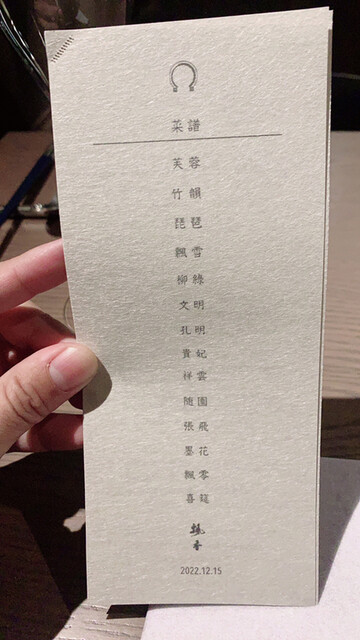 菜譜
芙蓉
竹韻
琵琶
飄雪
柳綠
文明
孔明
貴妃
祥雲
随園
張飛
墨花
飄零
喜筵
2022.12.15